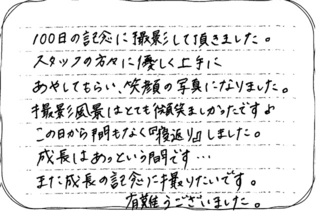 100日の記念に撮影して頂きました。
スタッフの方々に優しく上手に
あやしてもらい、笑顔の写真になりました。
撮影風景はとても微笑ましかったですよ
この日から間もなく『寝返り』しました。
成長はあっという間です…
また成長の記念に撮りたいです。
有難うございました。